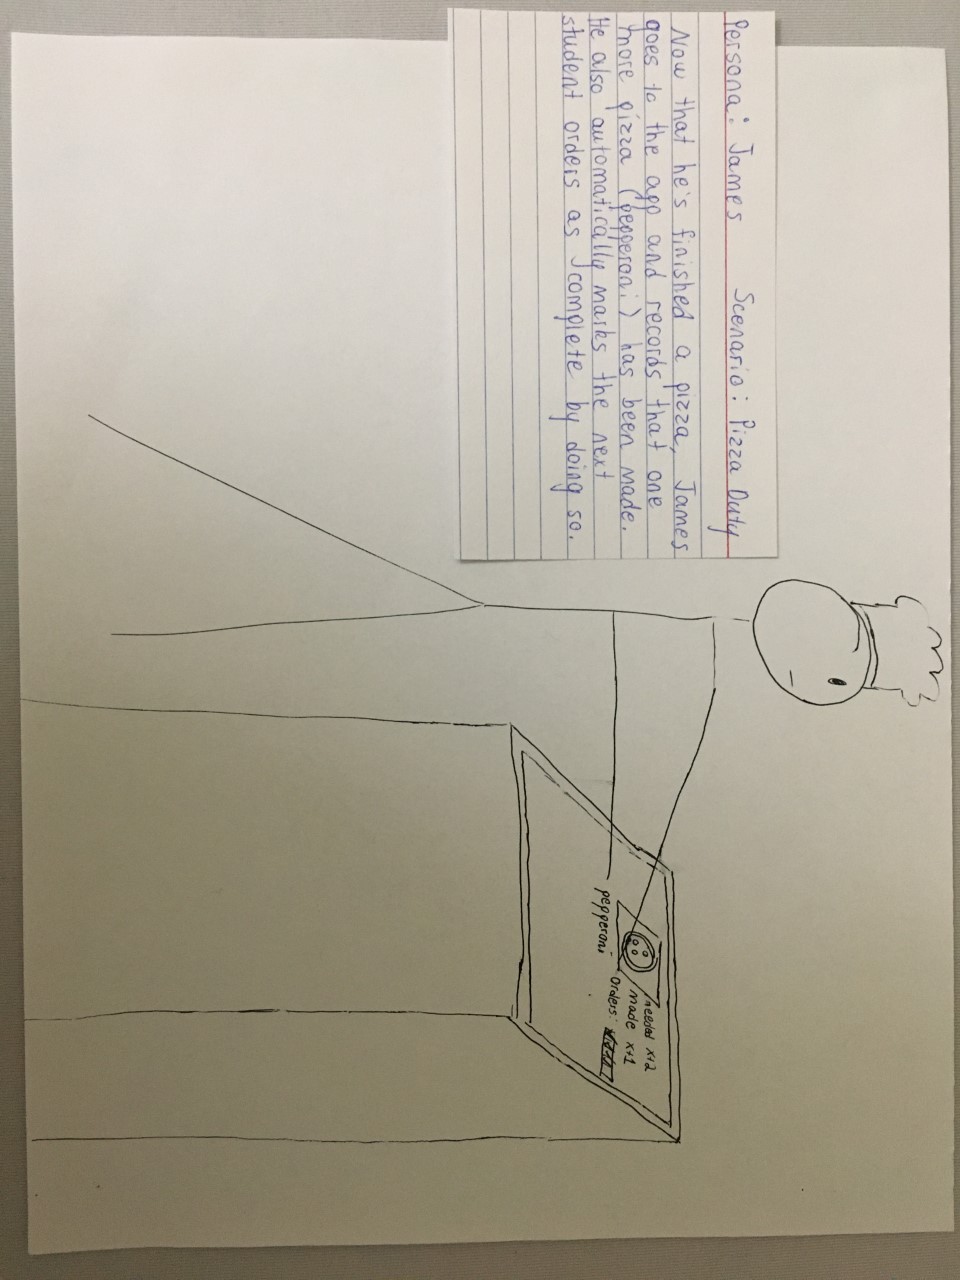 Persona: James Scenario: Pizza Duty
Now that he's finished a pizza, James
goes to the app and records that one
more pizza (pepperoni) has been made.
He also automatically marks the next
student orders as complete by doing so.
needed x+2
made x+1
Orders:
pepperoni